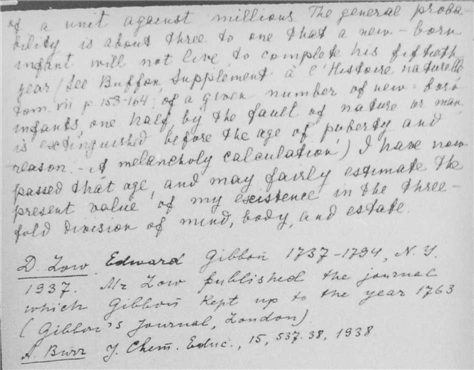 of a unit against millions. The general proba-
bility is about three to one that a new-born
infant will not live to complete his fiftieth
year (See Buffon, Supplement à l'Histoire naturelle
tom VII p 158-164, of a given number of new-born
infants, one half, by the fault of nature or man
is extinguished before the age of puberty and
reason. - A melancholy calculation!) I have now
passed that age, and may fairly estimate the
present value of my existence in the three-
fold division of mind, body, and estate.
D. Low Edward Gibbon 1737-1794, N.Y.
1937. Mr Low published the journal
which Gibbon kept up to the year 1763
(Gibbon's Journal, London)
A. Burr J. Chem. Educ., 15, 537-38, 1938